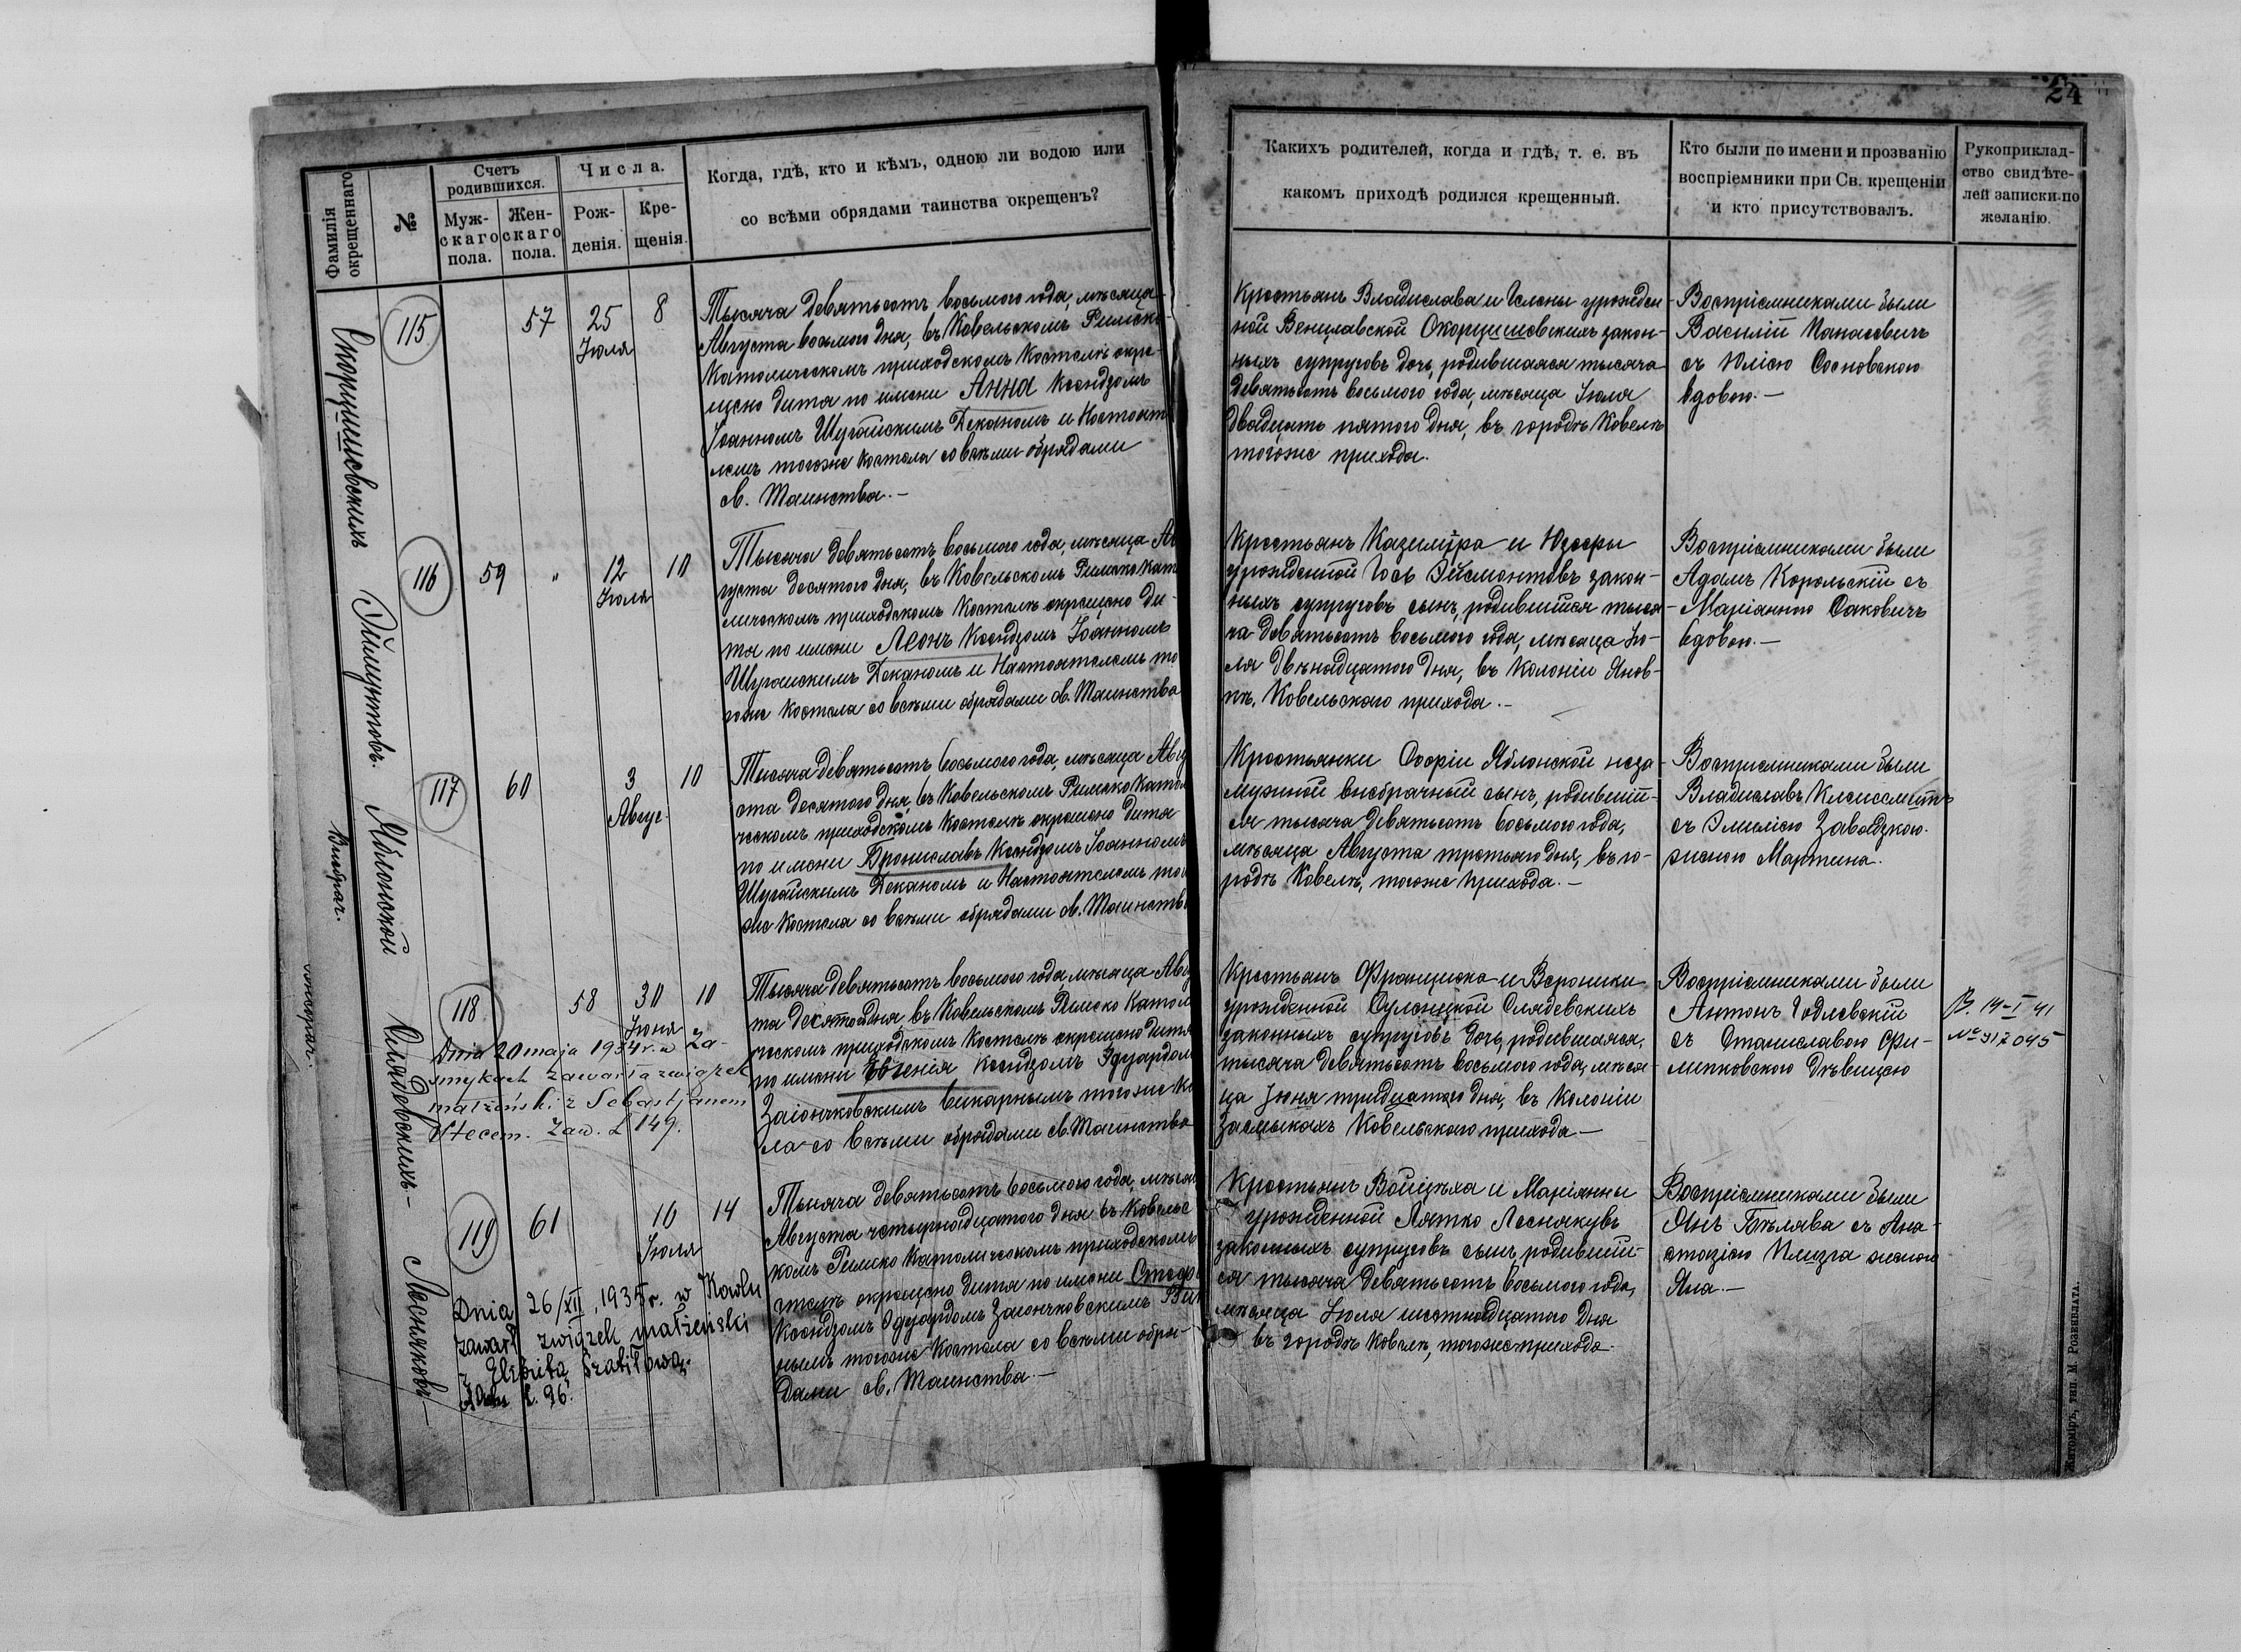 24
Фамилія окрещеннаго
№
Счетъ родившихся.
Муж-скаго пола.
Жен-скаго пола.
Числа.
Рож-денія.
Кре-щенія.
Когда, гдѣ, кто и кѣмъ, одною ли водою или
со всѣми обрядами таинства окрещенъ?
Какихъ родителей, когда и гдѣ, т. е. въ
какомъ приходѣ родился крещенный.
Кто были по имени и прозванію
воспріемники при Св. крещеніи
и кто присутствовалъ.
Рукоприклад-
ство свидѣте-
лей записки по
желанію.
115
57
25
Іюля
8
Тысяча девятьсотъ восьмого года, мѣсяца
Августа восьмого дня, въ Ковельскомъ Римско-
Католическомъ приходскомъ костелѣ окре-
щено дитя по имени Анна Ксендзомъ
Іоанномъ Шугайскимъ Деканомъ и Настояте
лемъ тогоже костела со всѣми обрядами
св. Таинства.-
Крестьянъ Владислава и Елены урожден
ной Венцлавской закон-
ныхъ супруговъ дочь, родившаяся тысяча
девятьсотъ восьмого года, мѣсяца Іюля
двадцать пятого дня, въ городѣ Ковелѣ
тогоже прихода.
Воспріемниками были
Василій Панасевичъ
съ Юліею Сосновскою
вдовою.-
116
Эймунтовъ.
59
"
12
Іюля
10
Тысяча девятьсотъ восьмого года, мѣсяца Ав
густа десятого дня, въ Ковельскомъ Римско Като
лическомъ приходскомъ костелѣ окрещено ди-
тя по имени Леонъ Ксендзомъ Іоанномъ
Шугайскимъ Деканомъ и Настоятелемъ то
гоже костела со всѣми обрядами св. Таинства
Крестьянъ Казиміра и Юзефы
урожденной Гось Эйсмонтовъ закон-
ныхъ супруговъ сынъ, родившійся тыся-
ча девятьсотъ восьмого года, мѣсяца Ію-
ля двѣнадцатого дня, въ колоніи Янов-
кѣ, Ковельскаго прихода.-
Воспріемниками были
Адамъ Корольскій съ
Маріанною Саковичъ
вдовою.-
117
Яблонской
внебрач.
60
3
Авгус.
10
Тысяча девятьсотъ восьмого года, мѣсяца Авгу
ста десятого дня въ Ковельскомъ Римско Католи
ческомъ приходскомъ костелѣ окрещено дитя
по имени Брониславъ Ксендзомъ Іоанномъ
Шугайскимъ Деканомъ и Настоятелемъ того
же костела со всѣми обрядами св. Таинства
Крестьянки Софіи Яблонской неза-
мужной внебрачный сынъ, родившій-
ся тысяча девятьсотъ восьмого года,
мѣсяца Августа третьяго дня, въ го-
родѣ Ковелѣ, тогоже прихода.-
Воспріемниками были
Владиславъ
съ Эмиліею Завадзкою
женою Мартина.
118
Слядевскихъ-
58
30
Іюня
10
Dnia 20 maja 1934 r. w Za-
smykach zawarła związek
małżeński z Sebastjanem
Stecem. Zaw. L 149.
Тысяча девятьсотъ восьмого года, мѣсяца Авгу
ста десятого дня въ Ковельскомъ Римско Катол
ческомъ приходскомъ костелѣ окрещено дитя
по имени Евгенія Ксендзомъ Эдуардом
Заіончковскимъ викарнымъ тогоже ко
ла со всѣми обрядами св. Таинства
Крестьянъ Францишка и Вероники
урожденной Слядевскихъ
законныхъ супруговъ дочь, родившаяся,
тысяча девятьсотъ восьмого года, мѣся-
ца Іюня тридцатого дня, въ колоніи
Засмыкахъ Ковельскаго прихода-
Воспріемниками были
Антонъ Годлевскій
съ Станиславою Фи-
липковскою дѣвицею
В. 14-I 41
№ 317045
119
Леснякову-
61
16
Іюля
14
Dnia 26/XII, 1935 r. w Kowlu
zawarł związek małżeński
z Elżbietą
L. 96.
Тысяча девятьсотъ восьмого года, мѣсяц
Августа четырнадцатого дня въ Ковельс
комъ Римско Католическомъ приходскомъ
костелѣ окрещено дитя по имени
Ксендзомъ Эдуардомъ Заіончковскимъ Вик
нымъ тогоже костела со всѣми обря-
дами св. Таинства-
Крестьянъ Войцѣха и Маріанны
урожденной Лятко Леснякувъ
законныхъ супруговъ сынъ, родившій-
ся тысяча девятьсотъ восьмого года,
мѣсяца Іюля шестнадцатого дня
въ городѣ Ковелѣ, тогоже прихода.
Воспріемниками были
Янъ Бѣлява съ Ана-
стазіею женою
Яна.-
Житоміръ, тип. М. Розенблата.